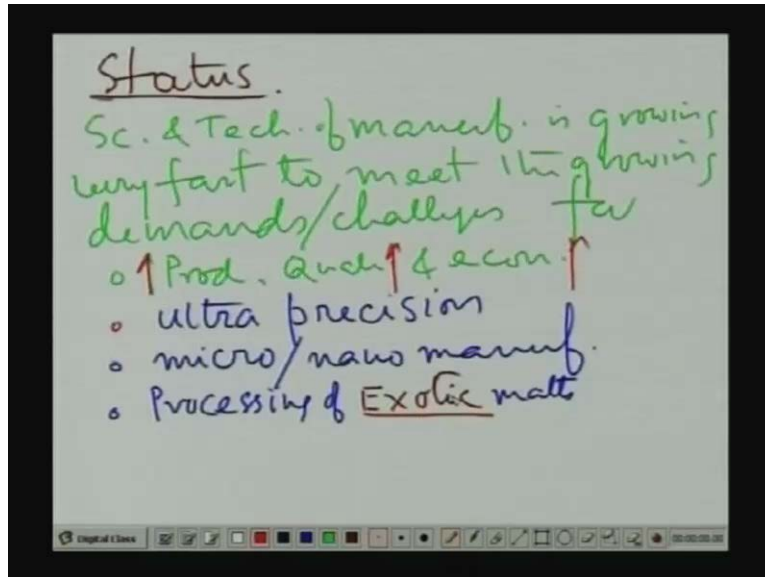 Status.
Sc. & Tech. of manuf. is growing
very fast to meet the growing
demands/challyes for
o ↑ Prod. Qual ↑ & econ. ↑
o ultra precision
o micro/nano manuf.
o Processing of Exotic matls
Digital Class 00:00:00.00